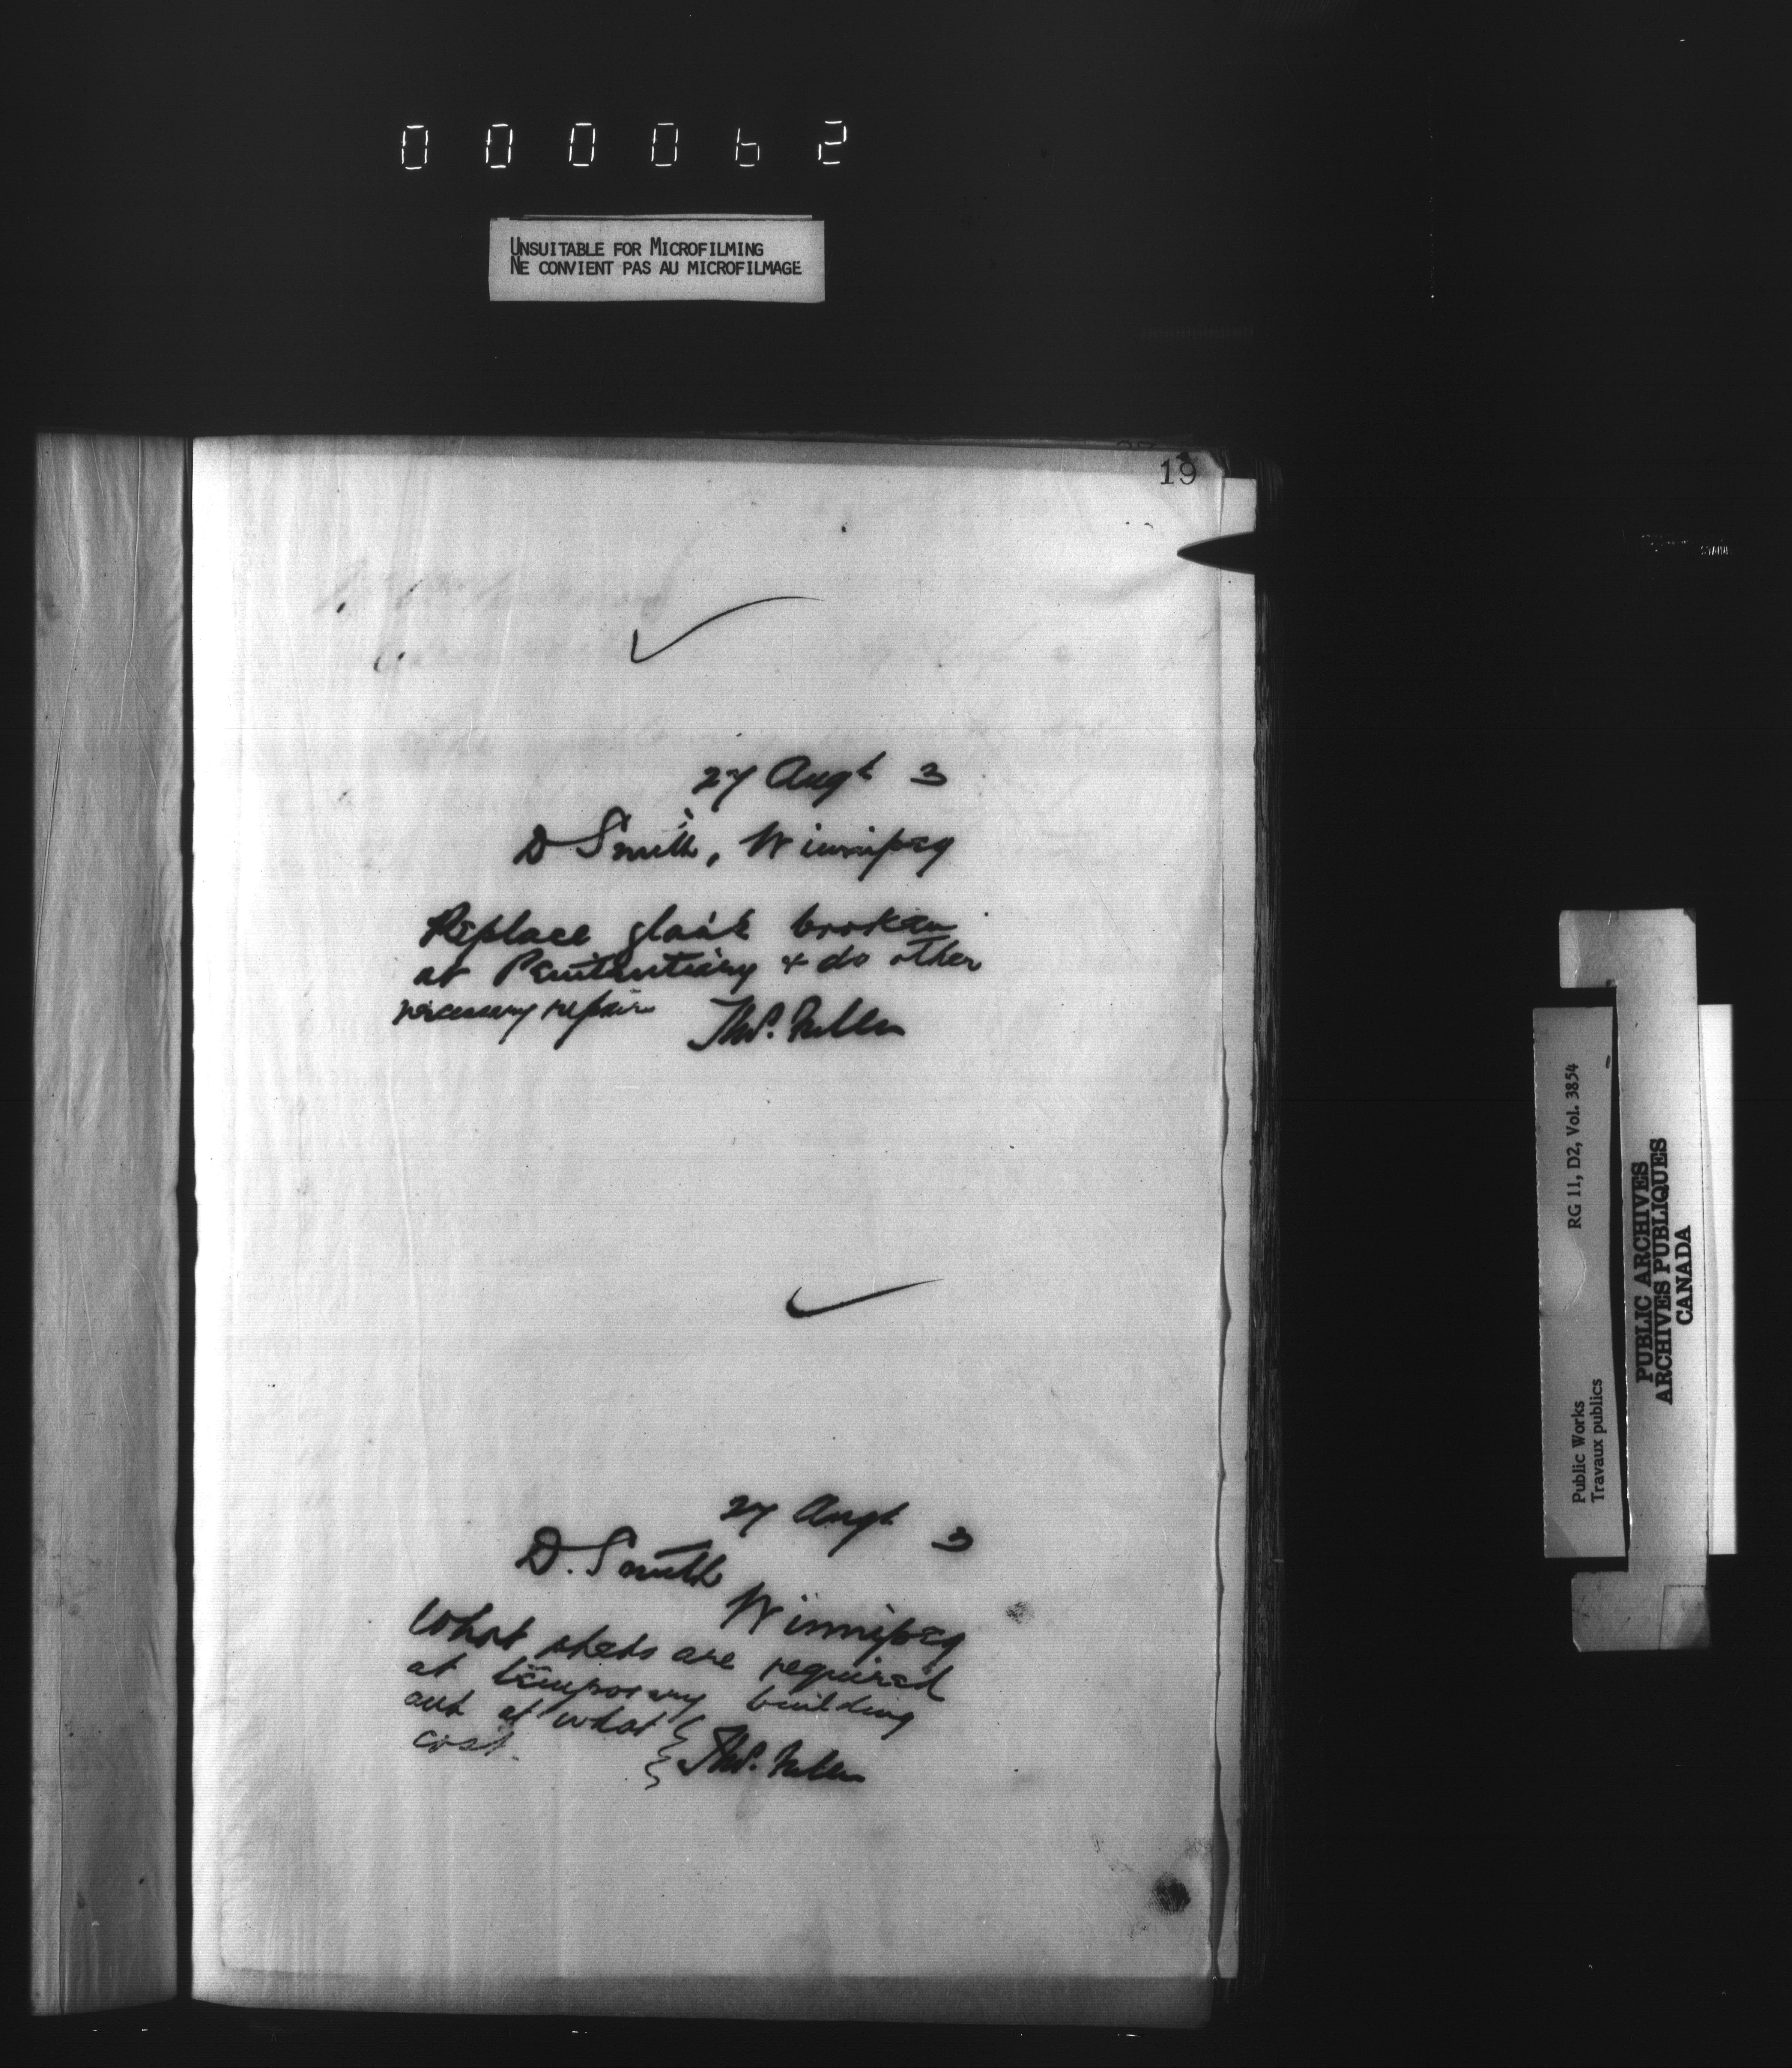 000062
UNSUITABLE FOR MICROFILMING
NE CONVIENT PAS AU MICROFILMAGE
19
27 Augt 3
D Smith, Winnipeg
Replace glass broken
at Penitentiary & do other
necessary repairs
Thos. Fuller
27 Augt 3
D. Smith
Winnipeg
What sheds are required
at temporary building
and at what
cost.
Thos. Fuller
Public Works
Travaux publics
RG 11, D2, Vol. 3854
PUBLIC ARCHIVES
ARCHIVES PUBLIQUES
CANADA